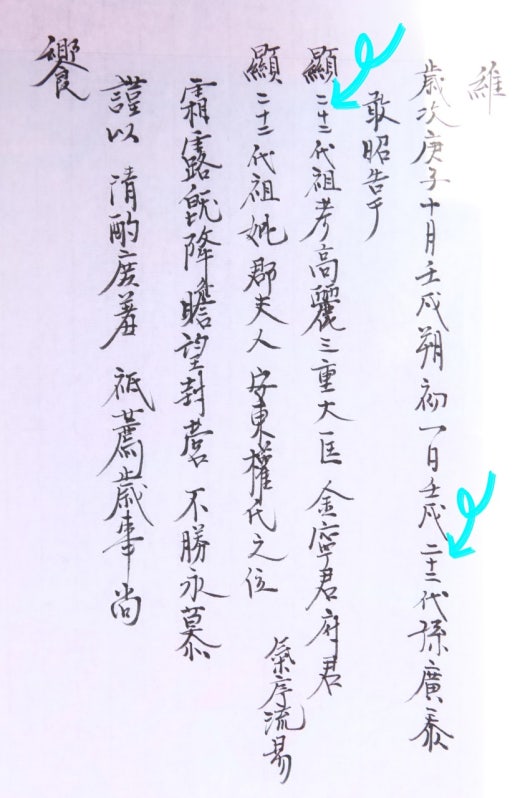 維
歲次庚子十月壬戌朔初一日壬戌 二十二代孫廣泰
敢昭告于
顯二十二代祖考高麗三重大匡 金寧君府君
顯二十二代祖妣郡夫人安東權氏之位
氣序流易
霜露旣降瞻望封塋 不勝永慕
謹以 清酌庶羞 祗薦歲事 尚
饗